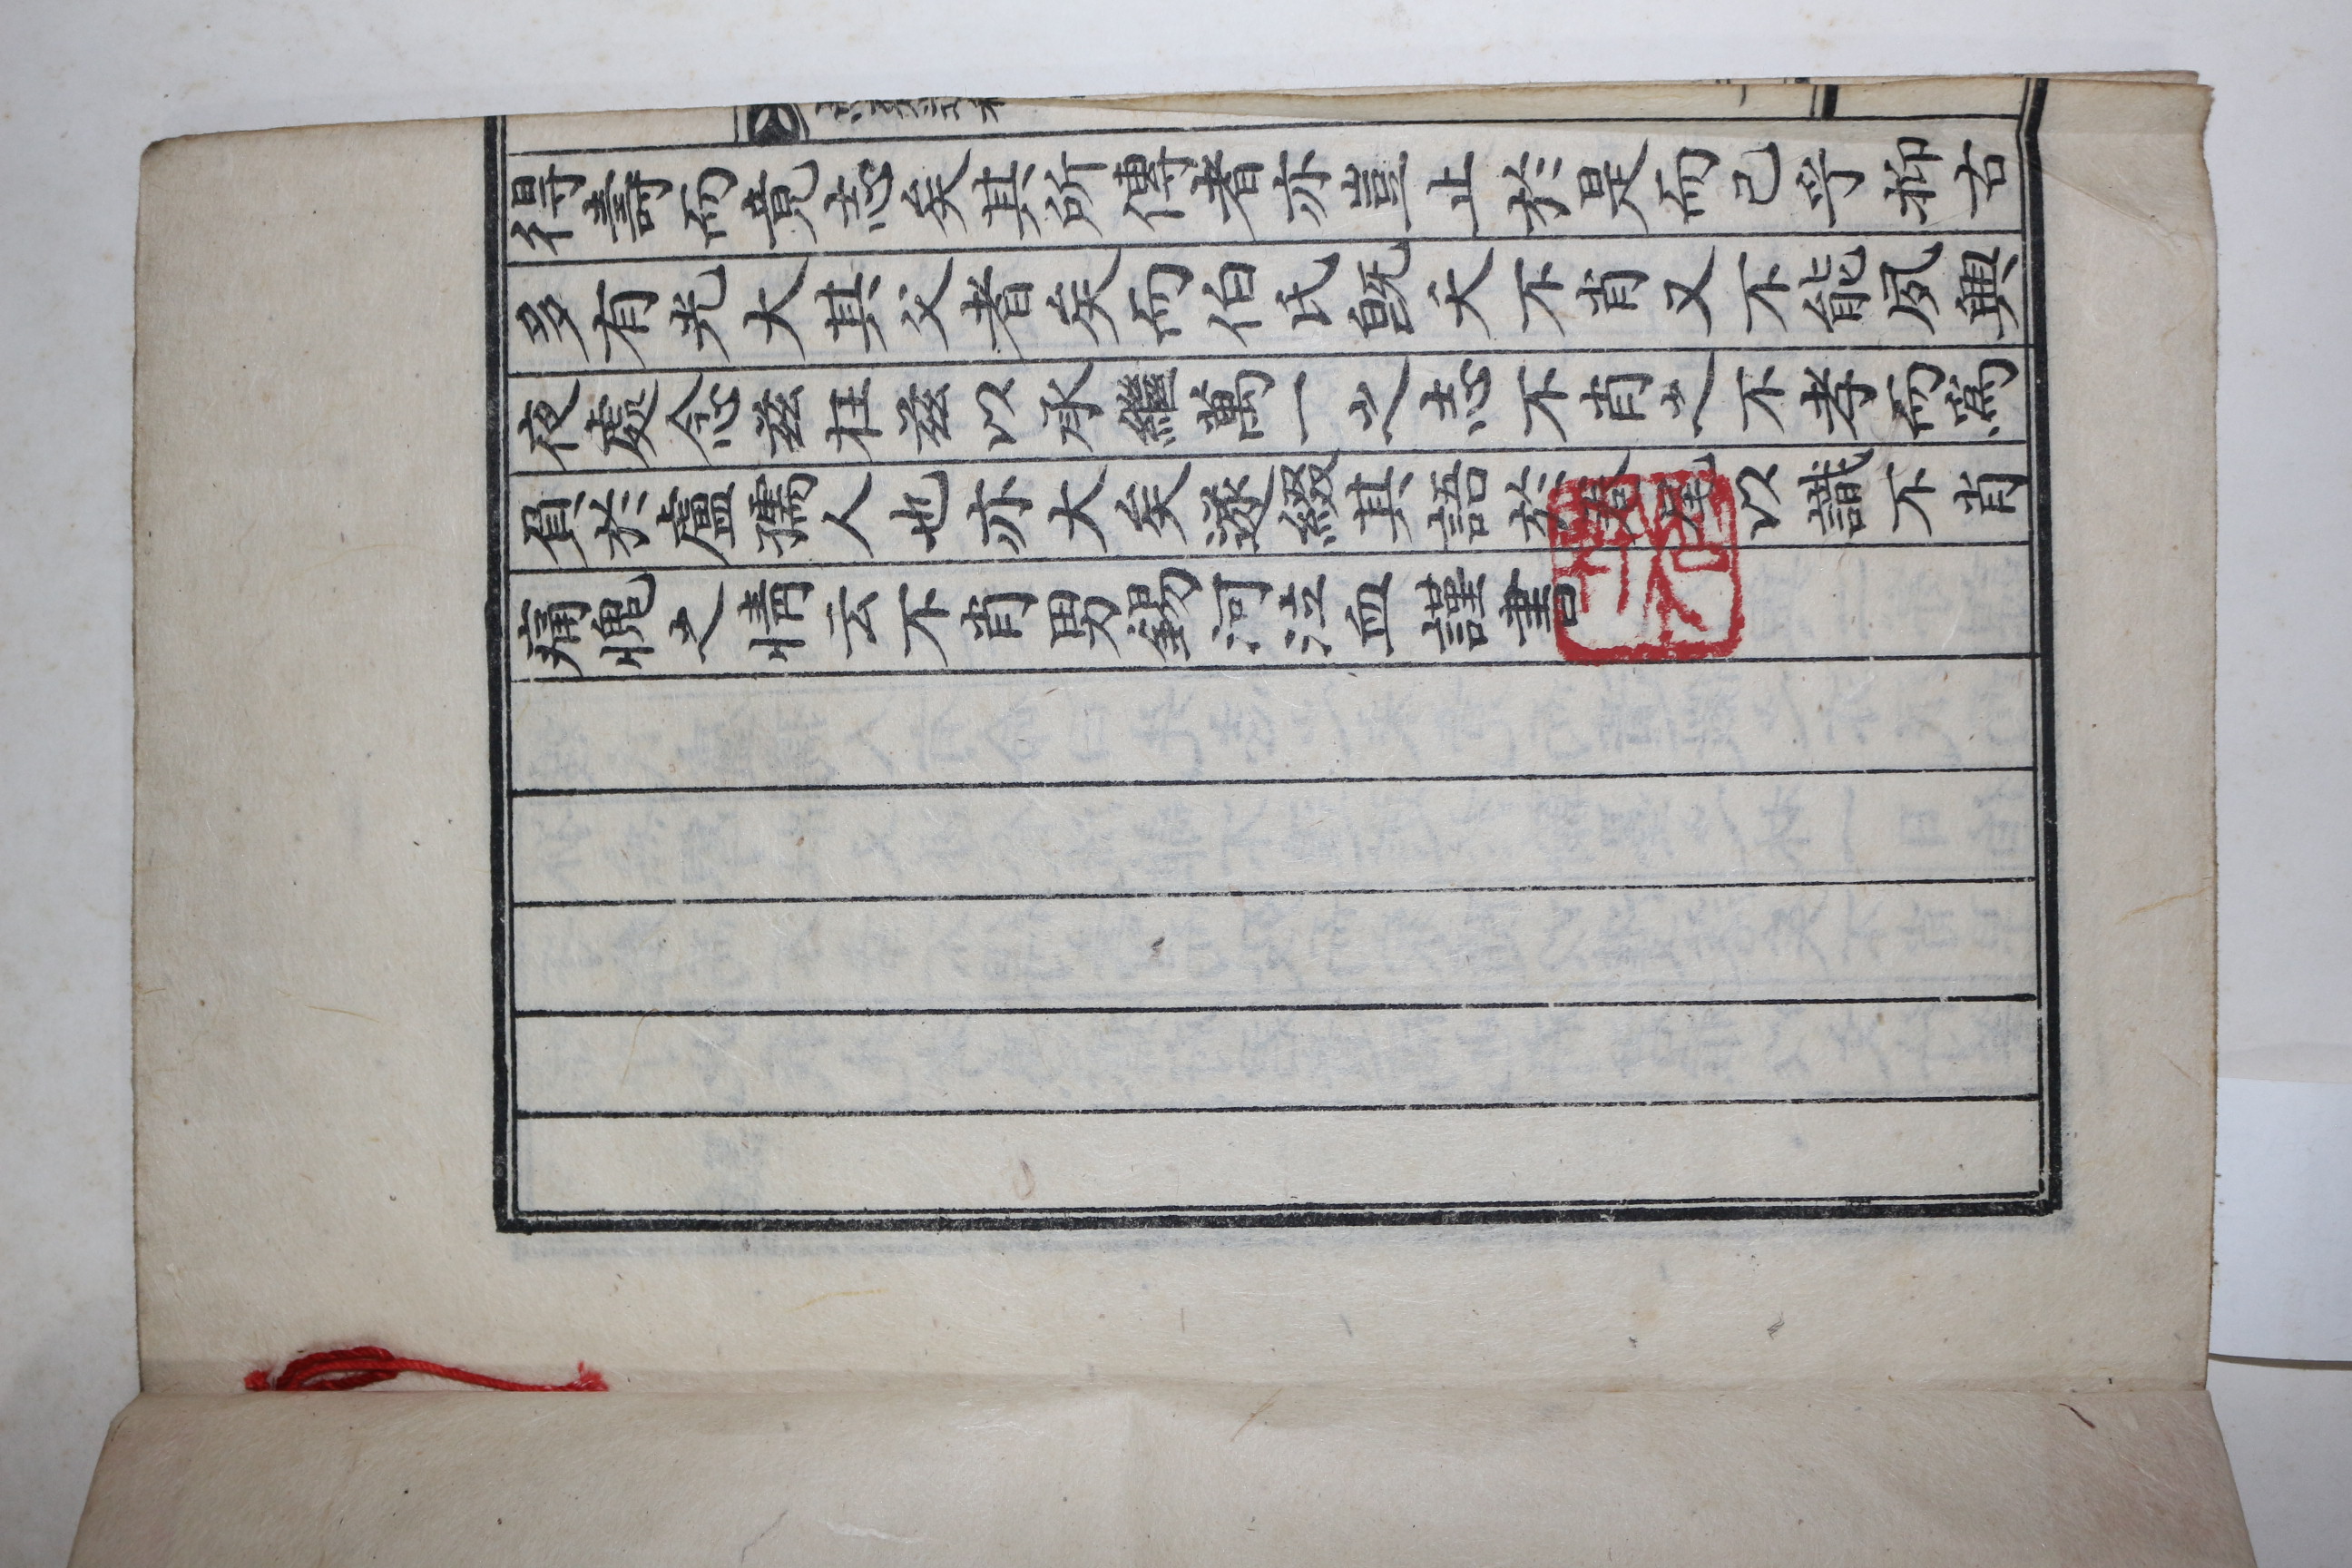 得壽而竟志矣其所傳者亦豈止於是而己乎抑古
多有光大其父者矣而伯氏旣夭不肖又不能夙興
夜處念兹在兹以承繼萬一之志不肖之不孝而爲
負於盧孺人也亦大矣遂綴其語於卷尾以識不肖
痛愧之情云不肖男錫河泣血謹書